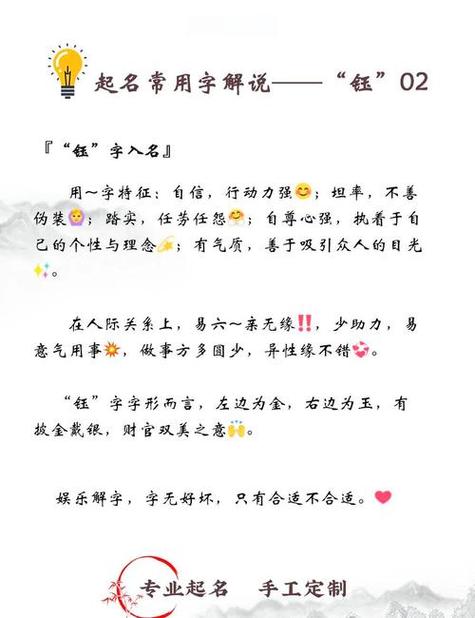 起名常用字解说——“钰”02
『“钰”字入名』
用~字特征：自信，行动力强😊；坦率，不善
伪装🙆；踏实，任劳任怨🤗；自尊心强，执着于自
己的个性与理念💫；有气质，善于吸引众人的目光
✨。
在人际关系上，易六~亲无缘‼️，少助力，易
意气用事💥，做事方多圆少，异性缘不错💞。
“钰”字字形而言，左边为金，右边为玉，有
披金戴银，财官双美之意🙌。
娱乐解字，字无好坏，只有合适不合适。❤️
专业起名 手工定制